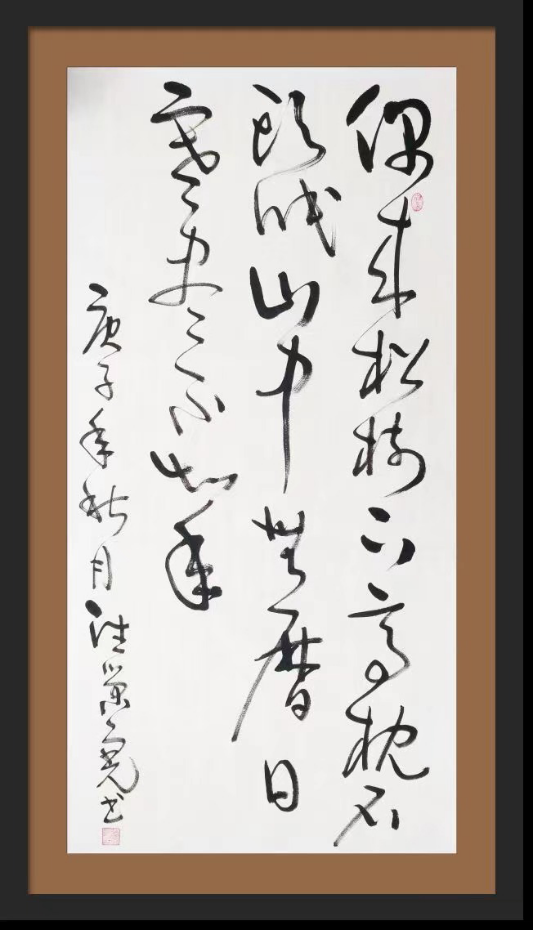 偶来松树下高枕石
頭眠山中無曆日
寒尽不知年
庚子年秋月书